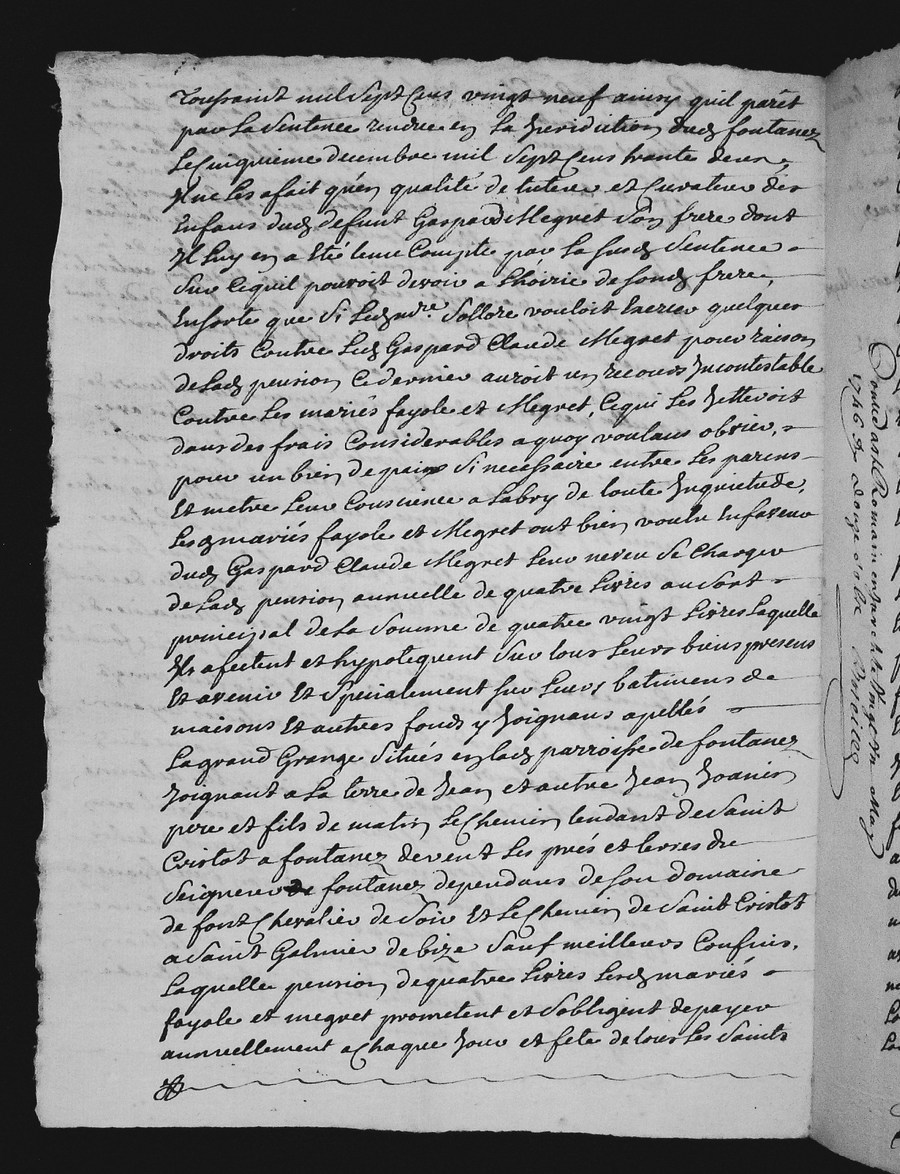 Toussaint mil sept Cens vingt neuf ainsy quil paret
par La Sentence rendue en La Juridiction dud. fontanez
Le Cinquieme decembre mil Sept Cens trante deux,
Il ne Les a fait qu'en qualité de tuteur et Curateur des
Enfans dud. defunt Gaspard Megret Son frere dont
Il Luy en a été tenu Compte par La Susd. Sentence
Sur Cequil pouvoit devoir a Lhoirie de Sond. frere,
Ensorte que Si Led. mre. Solleze vouloit Exercer quelques
droits Contre Led. Gaspard Claude Megret pour raison
de Lad. pension Ce dernier auroit un recours Incontestable
Contre Les mariés fayole et Megret, Cequi Les Jetteroit
dans des frais Considerables a quoy voulans obvier,
pour un bien de paix Si necessaire entre Les parens
Et metre Leur Conscience a Labry de toute Inquietude,
Lesd. mariés fayole et Megret ont bien voulu En faveur
dud. Gaspard Claude Megret Leur neveu Se Charger
de Lad. pension annuelle de quatre Livres au Sort
principal de La Somme de quatre vingt Livres Laquelle
Ils afectent et hypotequent Sur tous Leurs biens presens
Et avenir Et Specialement Sur Leurs batimens de
maisons Et autres fonds y Joignans apellés
La grand Grange Situés en Lad. parroisse de fontanez
Joignant a La terre de Jean et autre Jean Joanin
pere et fils de matin, Le Chemin tendant de Saint
Cristot a fontanez de vent Les prés et terres du
Seigneur de fontanez dependans de Son domaine
de font Chevalier de Soir Et Le Chemin de Saint Cristot
a Saint Galmier de bize Sauf meilleurs Confins,
Laquelle pension de quatre Livres Lesd. mariés
fayole et megret prometent et Sobligent de payer
annuellement a Chaque Jour et fete de tous Les Saints
Donné a St Romain en
1746